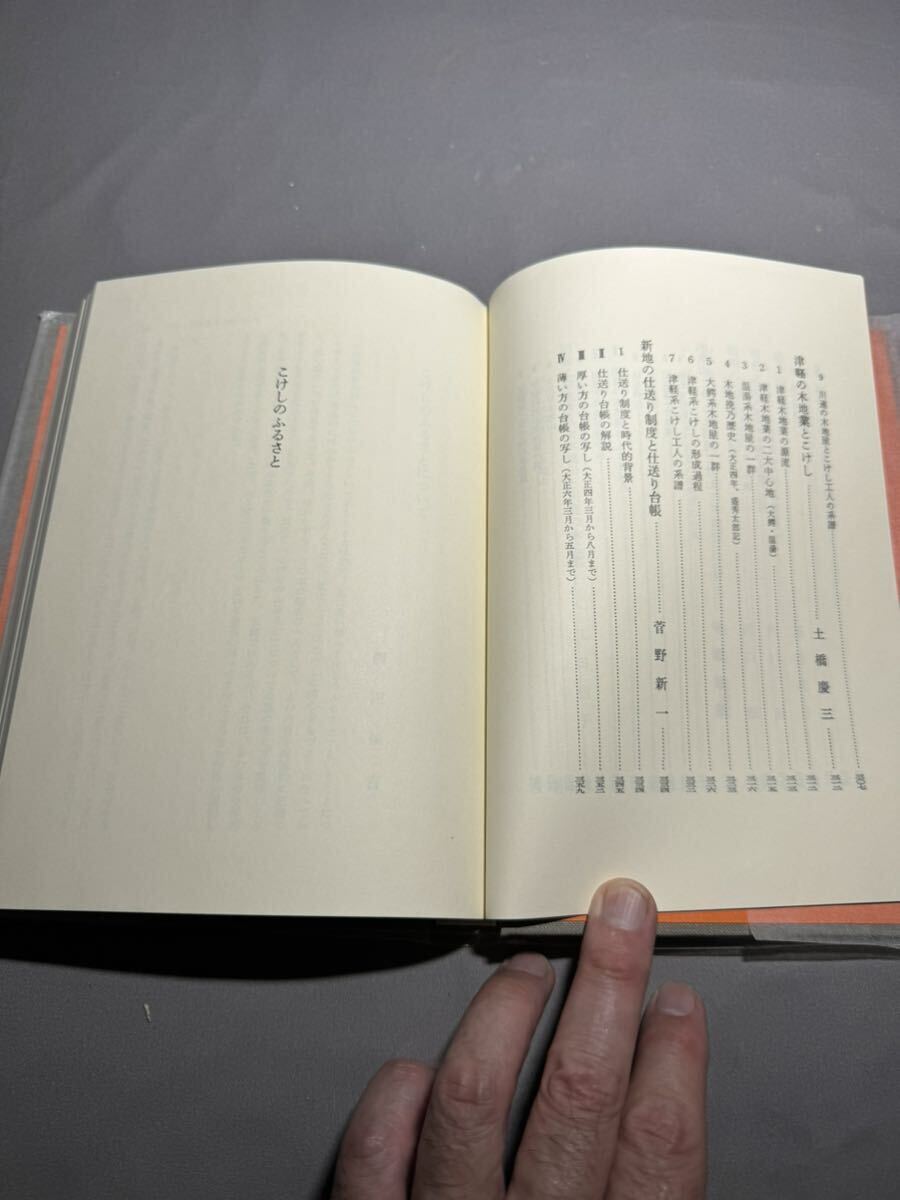 9 川連の木地屋とこけし工人の系譜……三〇七
津軽の木地業とこけし……土橋慶三……三一二
1 津軽木地業の源流……三一二
2 津軽木地業の二大中心地（大鰐・温湯）……三一三
3 温湯系木地屋の一群……三一五
4 木地挽乃歴史（大正四年、盛秀太郎記）……三一六
5 大鰐系木地屋の一群……三二三
6 津軽系こけしの形成過程……三二六
7 津軽系こけし工人の系譜……三三二
新地の仕送り制度と仕送り台帳……菅野新一……三三四
Ⅰ 仕送り制度と時代的背景……三三四
Ⅱ 仕送り台帳の解説……三四五
Ⅲ 厚い方の台帳の写し（大正四年三月から八月まで）……三五二
Ⅳ 薄い方の台帳の写し（大正六年三月から五月まで）……三五九
こけしのふるさと